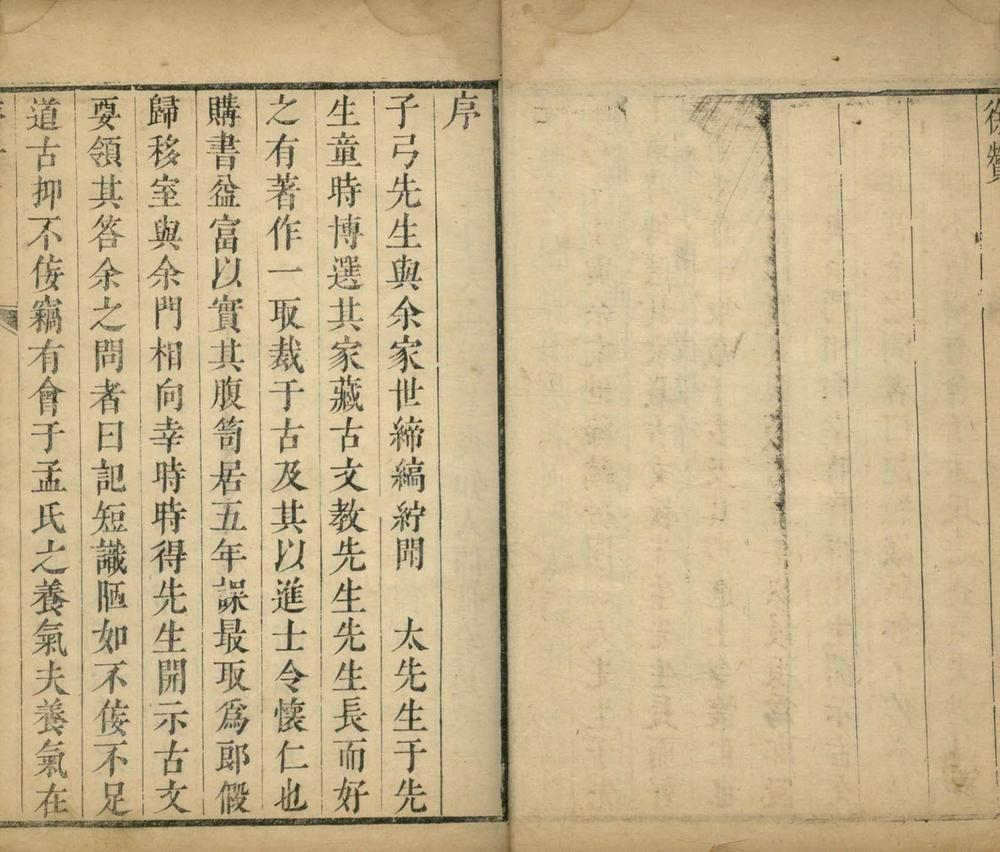 贊
序
子弓先生與余家世締縞紵聞　太先生于先
生童時博選其家藏古文教先生先生長而好
之有著作一取裁于古及其以進士令懷仁也
購書益富以實其腹笥居五年課最取爲郎假
歸移室與余門相向幸時時得先生開示古文
要領其答余之問者曰記短識陋如不佞不足
道古抑不佞竊有會于孟氏之養氣夫養氣在